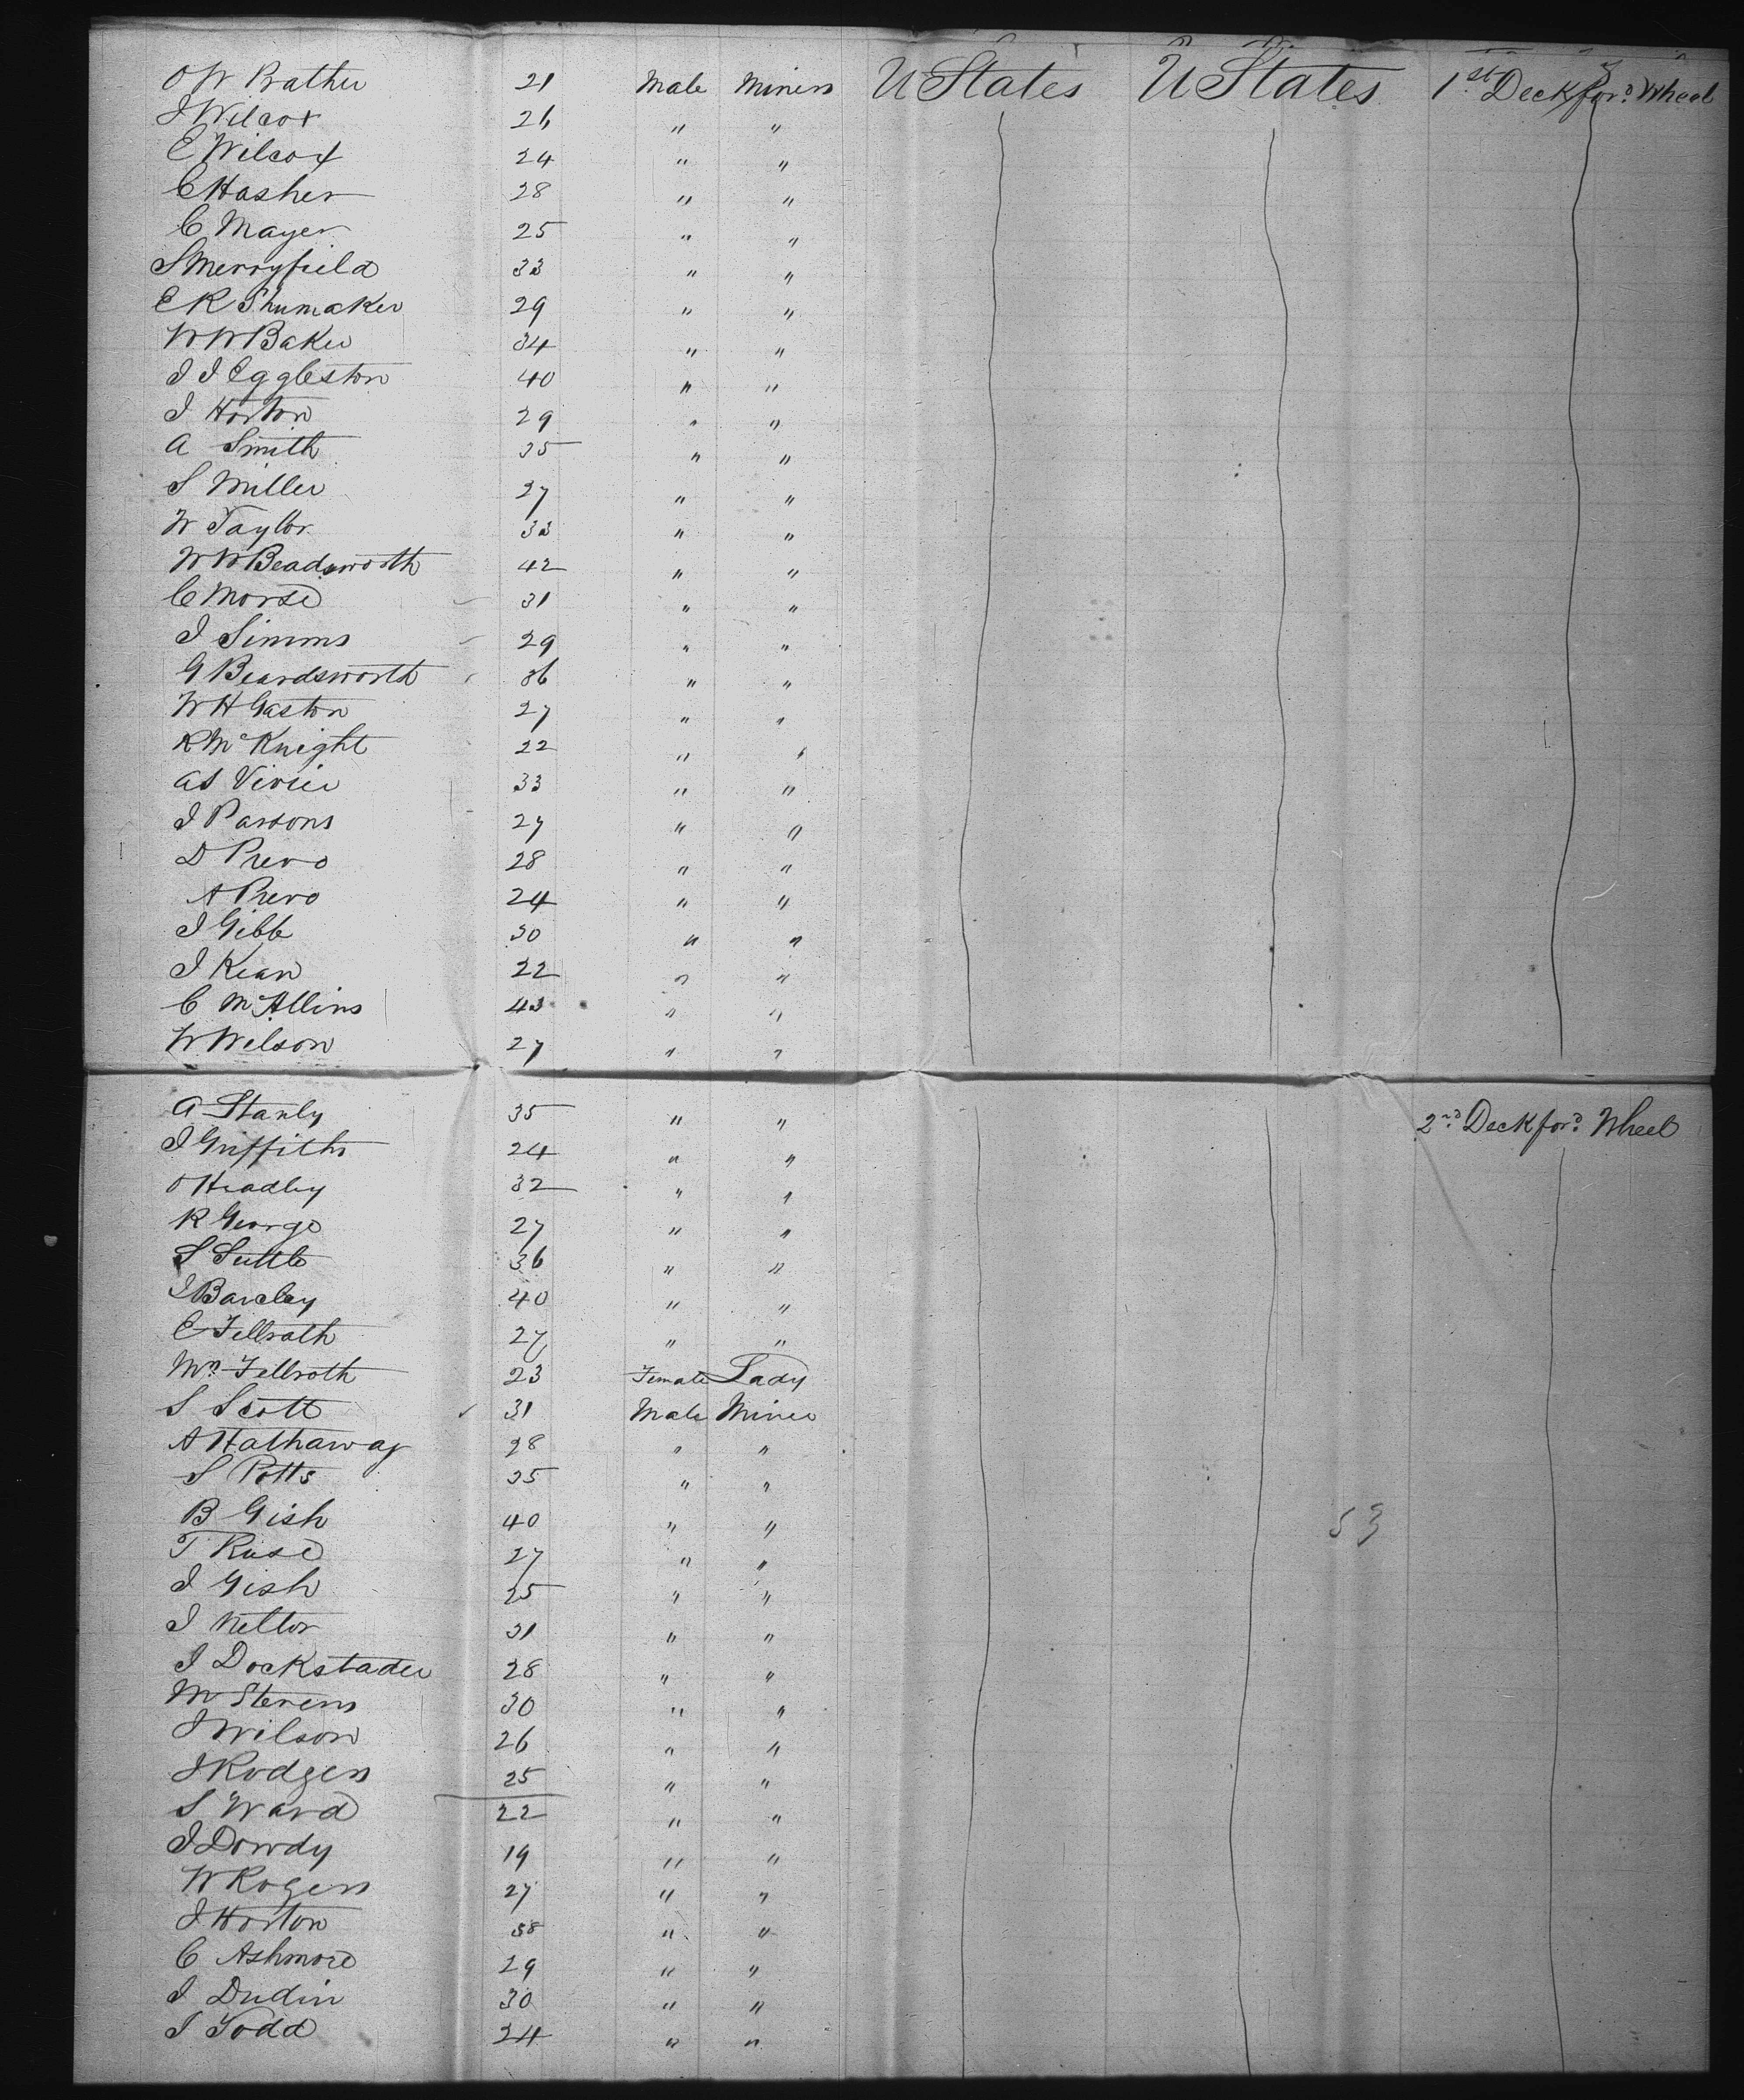 O W Prather 21 Male Miners U States U States 1st Deck for.d Wheel
J Wilcox 26 " "
C Wilcox 24 " "
C Hasher 28 " "
C Mayer 25 " "
S Merryfield 33 " "
E R Shumaker 29 " "
W W Baker 34 " "
J J Eggleston 40 " "
J Horton 29 " "
A Smith 35 " "
S Miller 27 " "
W Taylor 33 " "
W W Beadsworth 42 " "
C Morse 31 " "
J Simms 29 " "
G Beardsworth 36 " "
W H Gaston 27 " "
R McKnight 22 " "
33 " "
J Parsons 27 " "
D Prevo 28 " "
A Prevo 24 " "
J Gibb 30 " "
J Kean 22 " "
C McAllins 43 " "
W Welson 27 " "
A Stanly 35 " " 2nd Deck for.d Wheel
J Griffiths 24 " "
O Headley 32 " "
R George 27 " "
S Suttle 36 " "
J Barclay 40 " "
C Fellrath 27 " "
Mrs Fellroth 23 Female Lady
S Scott 31 Male Miner
A Hathaway 28 " "
S Potts 35 " "
B Gish 40 " " 53
T Ruse 27 " "
J Gish 25 " "
J Nellor 31 " "
J Dockstader 28 " "
M Stevens 30 " "
J Wilson 26 " "
J Rodgers 25 " "
S Ward 22 " "
J Dowdy 19 " "
W Rogers 27 " "
J Horton 38 " "
C Ashmore 29 " "
J Dudin 30 " "
J Todd 24 " "